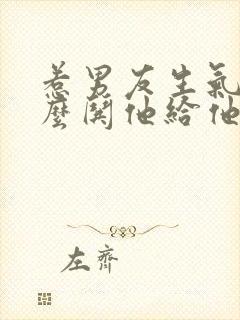 惹男友生氣
麼鬨他給他
左齊